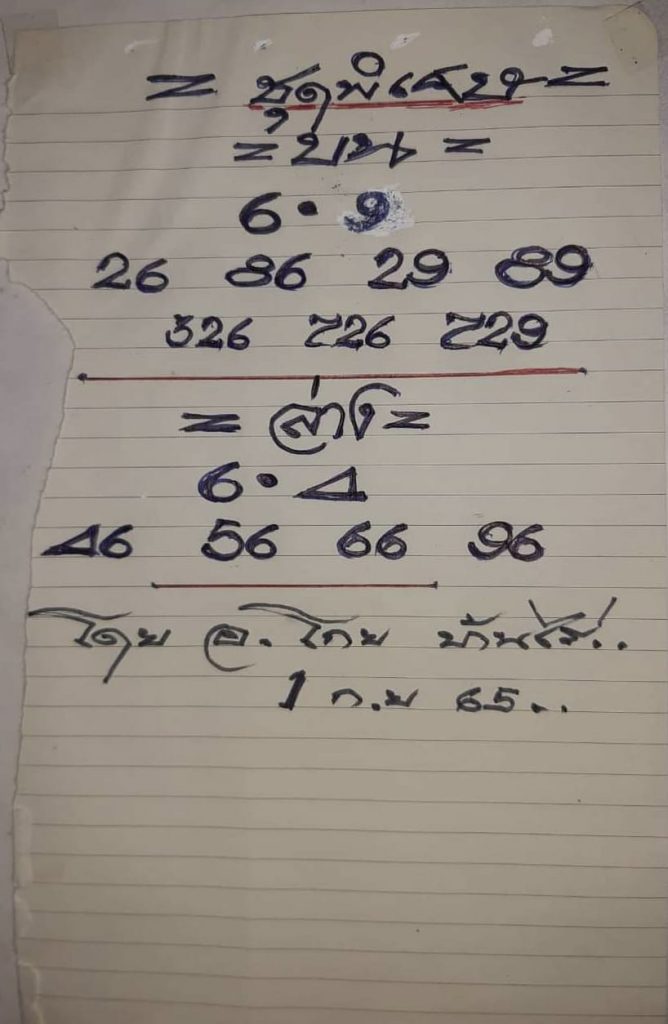 = ชุดพิเศษ =
= บน =
6 • 9
26 86 29 89
326 726 729
= ล่าง =
6 • 4
46 56 66 96
โดย อ. โกย บ้านไร่..
1 ก.ย 65..